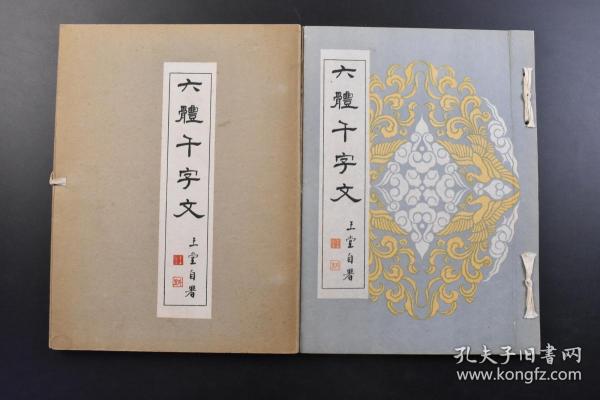 六體千字文
玉堂自署
六體千字文
玉堂自署
孔夫子旧书网
www.kongfz.com